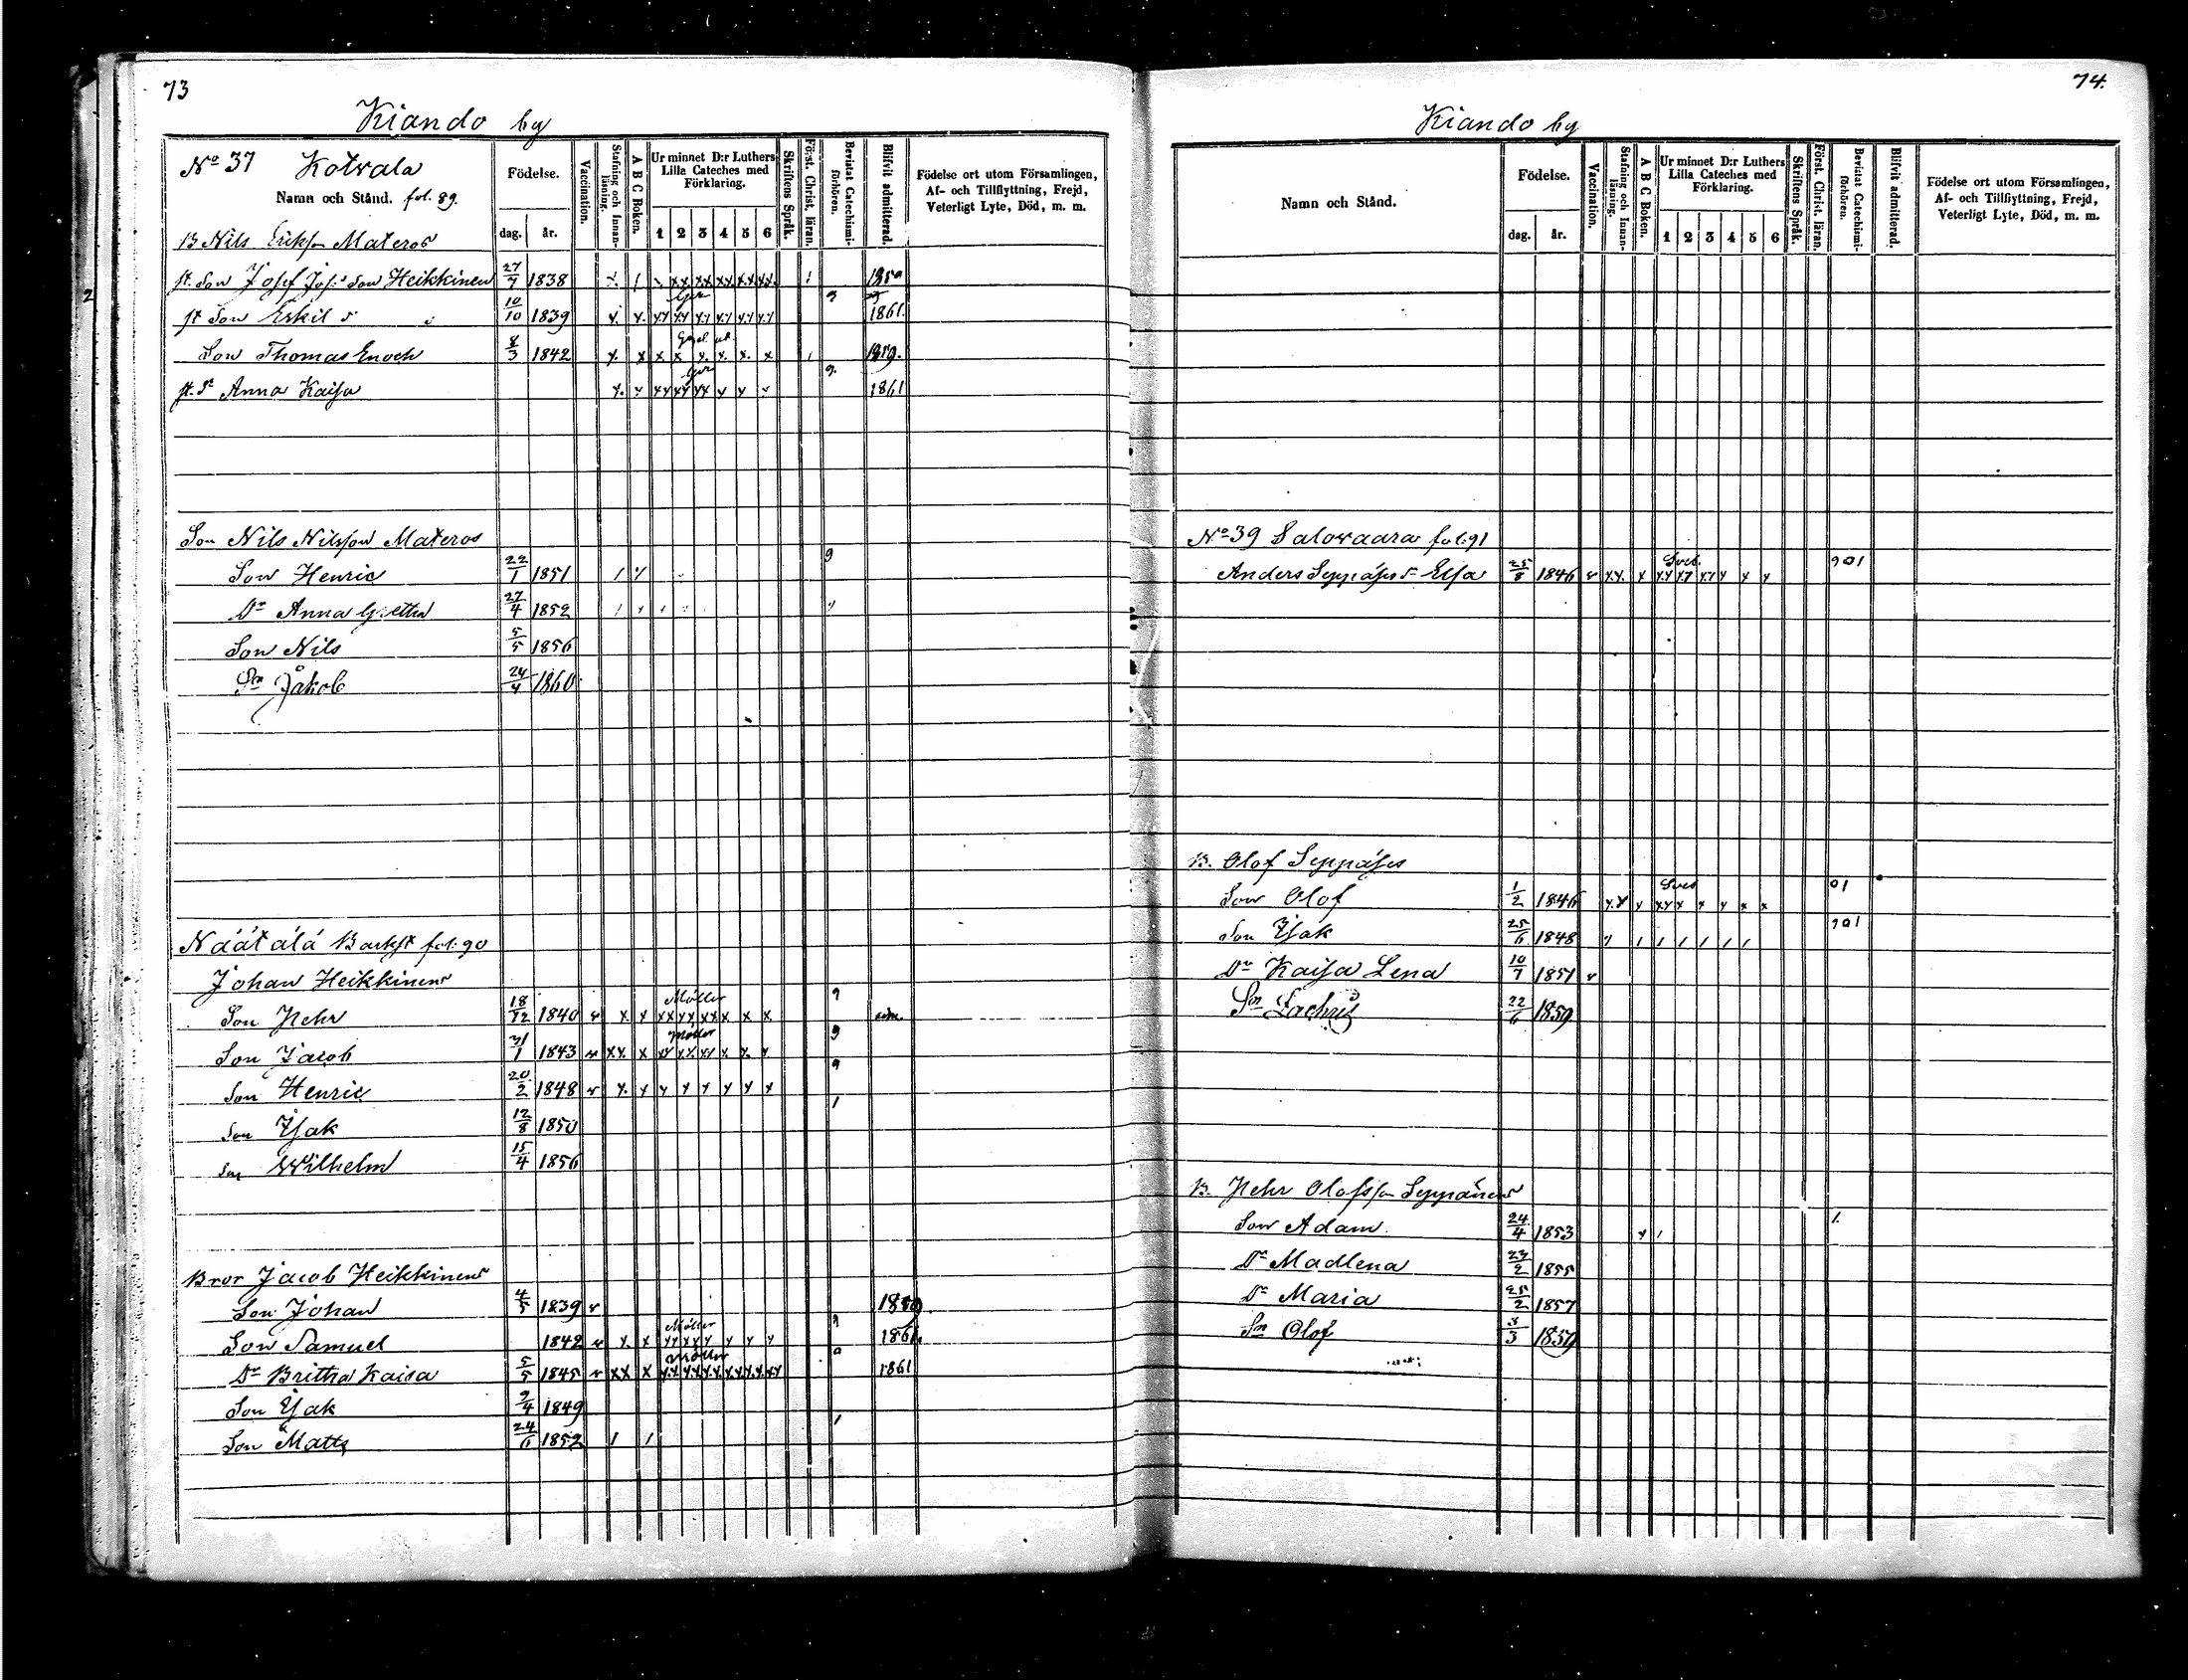 73
Kiando by
No 37 Kotvala
Namn och Stånd. fol. 89.
Födelse.
dag. år.
Vaccination.
Stafning och Innanläsning.
A B C Boken.
Ur minnet D:r Luthers Lilla Cateches med Förklaring.
1 2 3 4 5 6
Skriftens Språk.
Först. Christ. läran.
Bevistat Catechismiförhören.
Blifvit admitterad.
Födelse ort utom Församlingen, Af- och Tillflyttning, Frejd, Veterligt Lyte, Död, m. m.
B Nils Erikson Materos
st. Son Josef Jos:s son Heikkinen 27/7 1838
st Son Eskil 10/10 1839 9 1861.
Son Thomas Enoch 8/3 1842 x x x x x. x. x. x 1859.
st. Dr Anna Kaisa 9. 1861
Son Nils Nilsson Materos
Son Henric 22/1 1851 9
Dr Anna Gretha 27/4 1852
Son Nils 5/5 1856
Sn Jakob 24/4 1860
Näätälä Backst fol. 90
Johan Heikkinens
Son Pehr 18/12 1840 v x x Möller xx xx xx x x x 9
Son Jacob 31/1 1843 v xx. x Möller 9
Son Henric 20/2 1848 v x. x x x x x x x 9
Son Isak 12/8 1850 1
Son Wilhelm 15/4 1856
Bror Jacob Heikkinens
Son Johan 4/5 1839 v 1859
Son Samuel 1842 v x x Möller 1861.
Dr Britha Kaisa 5/5 1845 v xx x Möller 1861
Son Isak 9/4 1849
Son Matts 24/6 1852 1 1 1
74.
Kiando by
Namn och Stånd.
Födelse.
dag. år.
Vaccination.
Stafning och Innanläsning.
A B C Boken.
Ur minnet D:r Luthers Lilla Cateches med Förklaring.
1 2 3 4 5 6
Skriftens Språk.
Först. Christ. läran.
Bevistat Catechismiförhören.
Blifvit admitterad.
Födelse ort utom Församlingen, Af- och Tillflyttning, Frejd, Veterligt Lyte, Död, m. m.
No 39 Salovaara fol. 91
Anders Seppäses Dr Elsa 25/8 1846 v x.x. x Sveb. 901
B. Olof Seppäses
Son Olof 1/2 1846 x.x x Sveb 01
Son Isak 25/6 1848 901
Dr Kaisa Lena 10/7 1851 v
Sn Zachris 22/6 1859
B. Pehr Olofsson Seppänens
Son Adam 24/4 1853 1.
Dr Madlena 23/2 1855
Dr Maria 25/2 1857
Sn Olof 3/3 1859